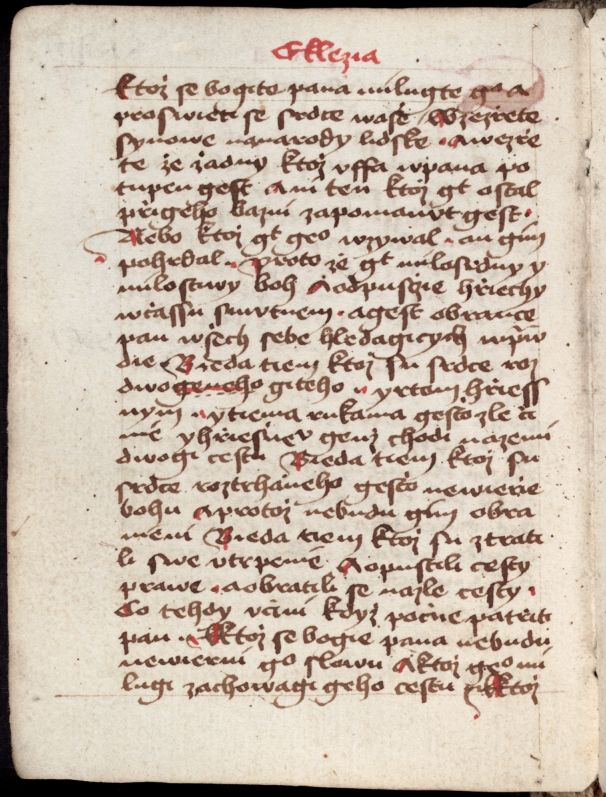 Eklezia
ktoz se bogite pana milugte go a
proswieti se srdce wase Wzezrete
synowe na narody lidske A wezrie
te ze zadny ktoz vffa w pana po
tupen gest Ani ten ktoz gt ostal
prigeho bazni zapomanut gest
Nebo ktoz gt geo wzywal an gim
pohrdal proto ze gt milosrdny y
milostiwy boh A odpusczie hriechy
w czassu smutnem a gest obrance
pan wssech sebe hledagicych w praw
die Bieda tiem ktoz su srdce roz
dwogeneho giteho y rtem hriess
nym y tiema rukama gesto zle czi
nie y hriesnev genz chodi na zemi
dwogi cestu Bieda tiem ktoz su
srdce roztrhaneho gesto newierie
bohu A protoz nebudu gim obra
nieni Bieda tiem ktoz su ztrati
li swe vtrpenie A opustili cesty
prawe a obratili se na zle cesty
Co tehdy vcini kdyz pocne patriti
pan Ktoz se bogie pana nebudu
newierni go slowu A ktoz geo mi
lugi zachowagi geho cestu Ktoz